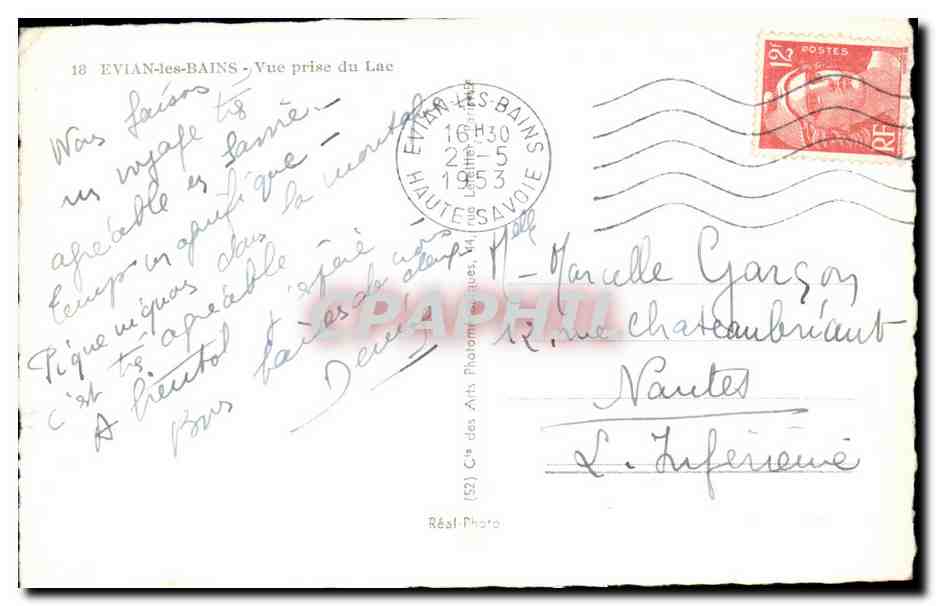 18 EVIAN-les-BAINS - Vue prise du Lac
Nous faisons
un voyage très
agréable et
Temps magnifique -
Pique niquons dans la montagne
c'est très agréable
A bientôt j'espère
Bons baisers de nous deux
Denise
EVIAN-LES-BAINS
16H30
2 -5
1953
HAUTE SAVOIE
POSTES
12F
RF
Melle Marcelle Garçon
12, rue Chateaubriant
Nantes
L. Inférieure
(52) Cie des Arts Photomécaniques, 44, rue Letellier, Paris
Réal-Photo
CPAPHIL